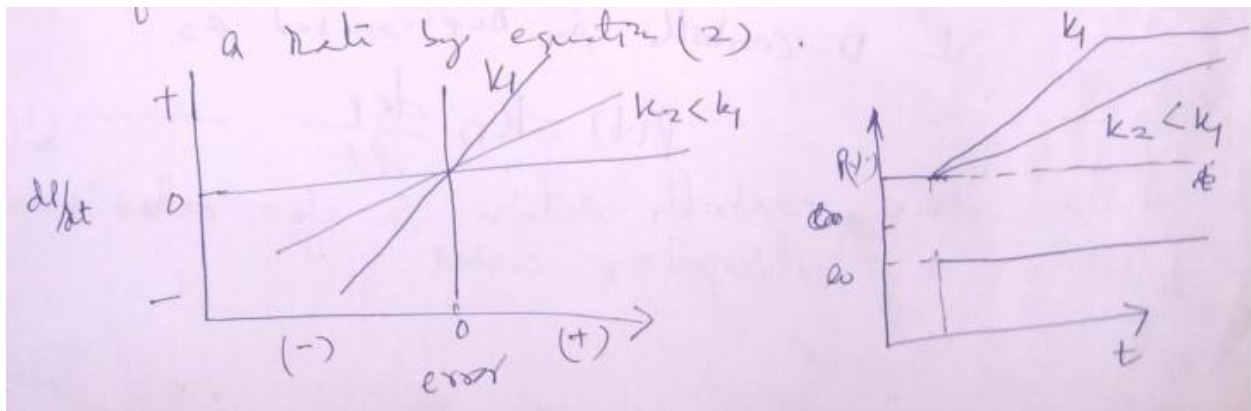 a rate by equation (2).
K1
+
K2 < K1
dP/dt
0
-
0
(-)
(+)
error
K1
K2 < K1
P(t)
e0
t